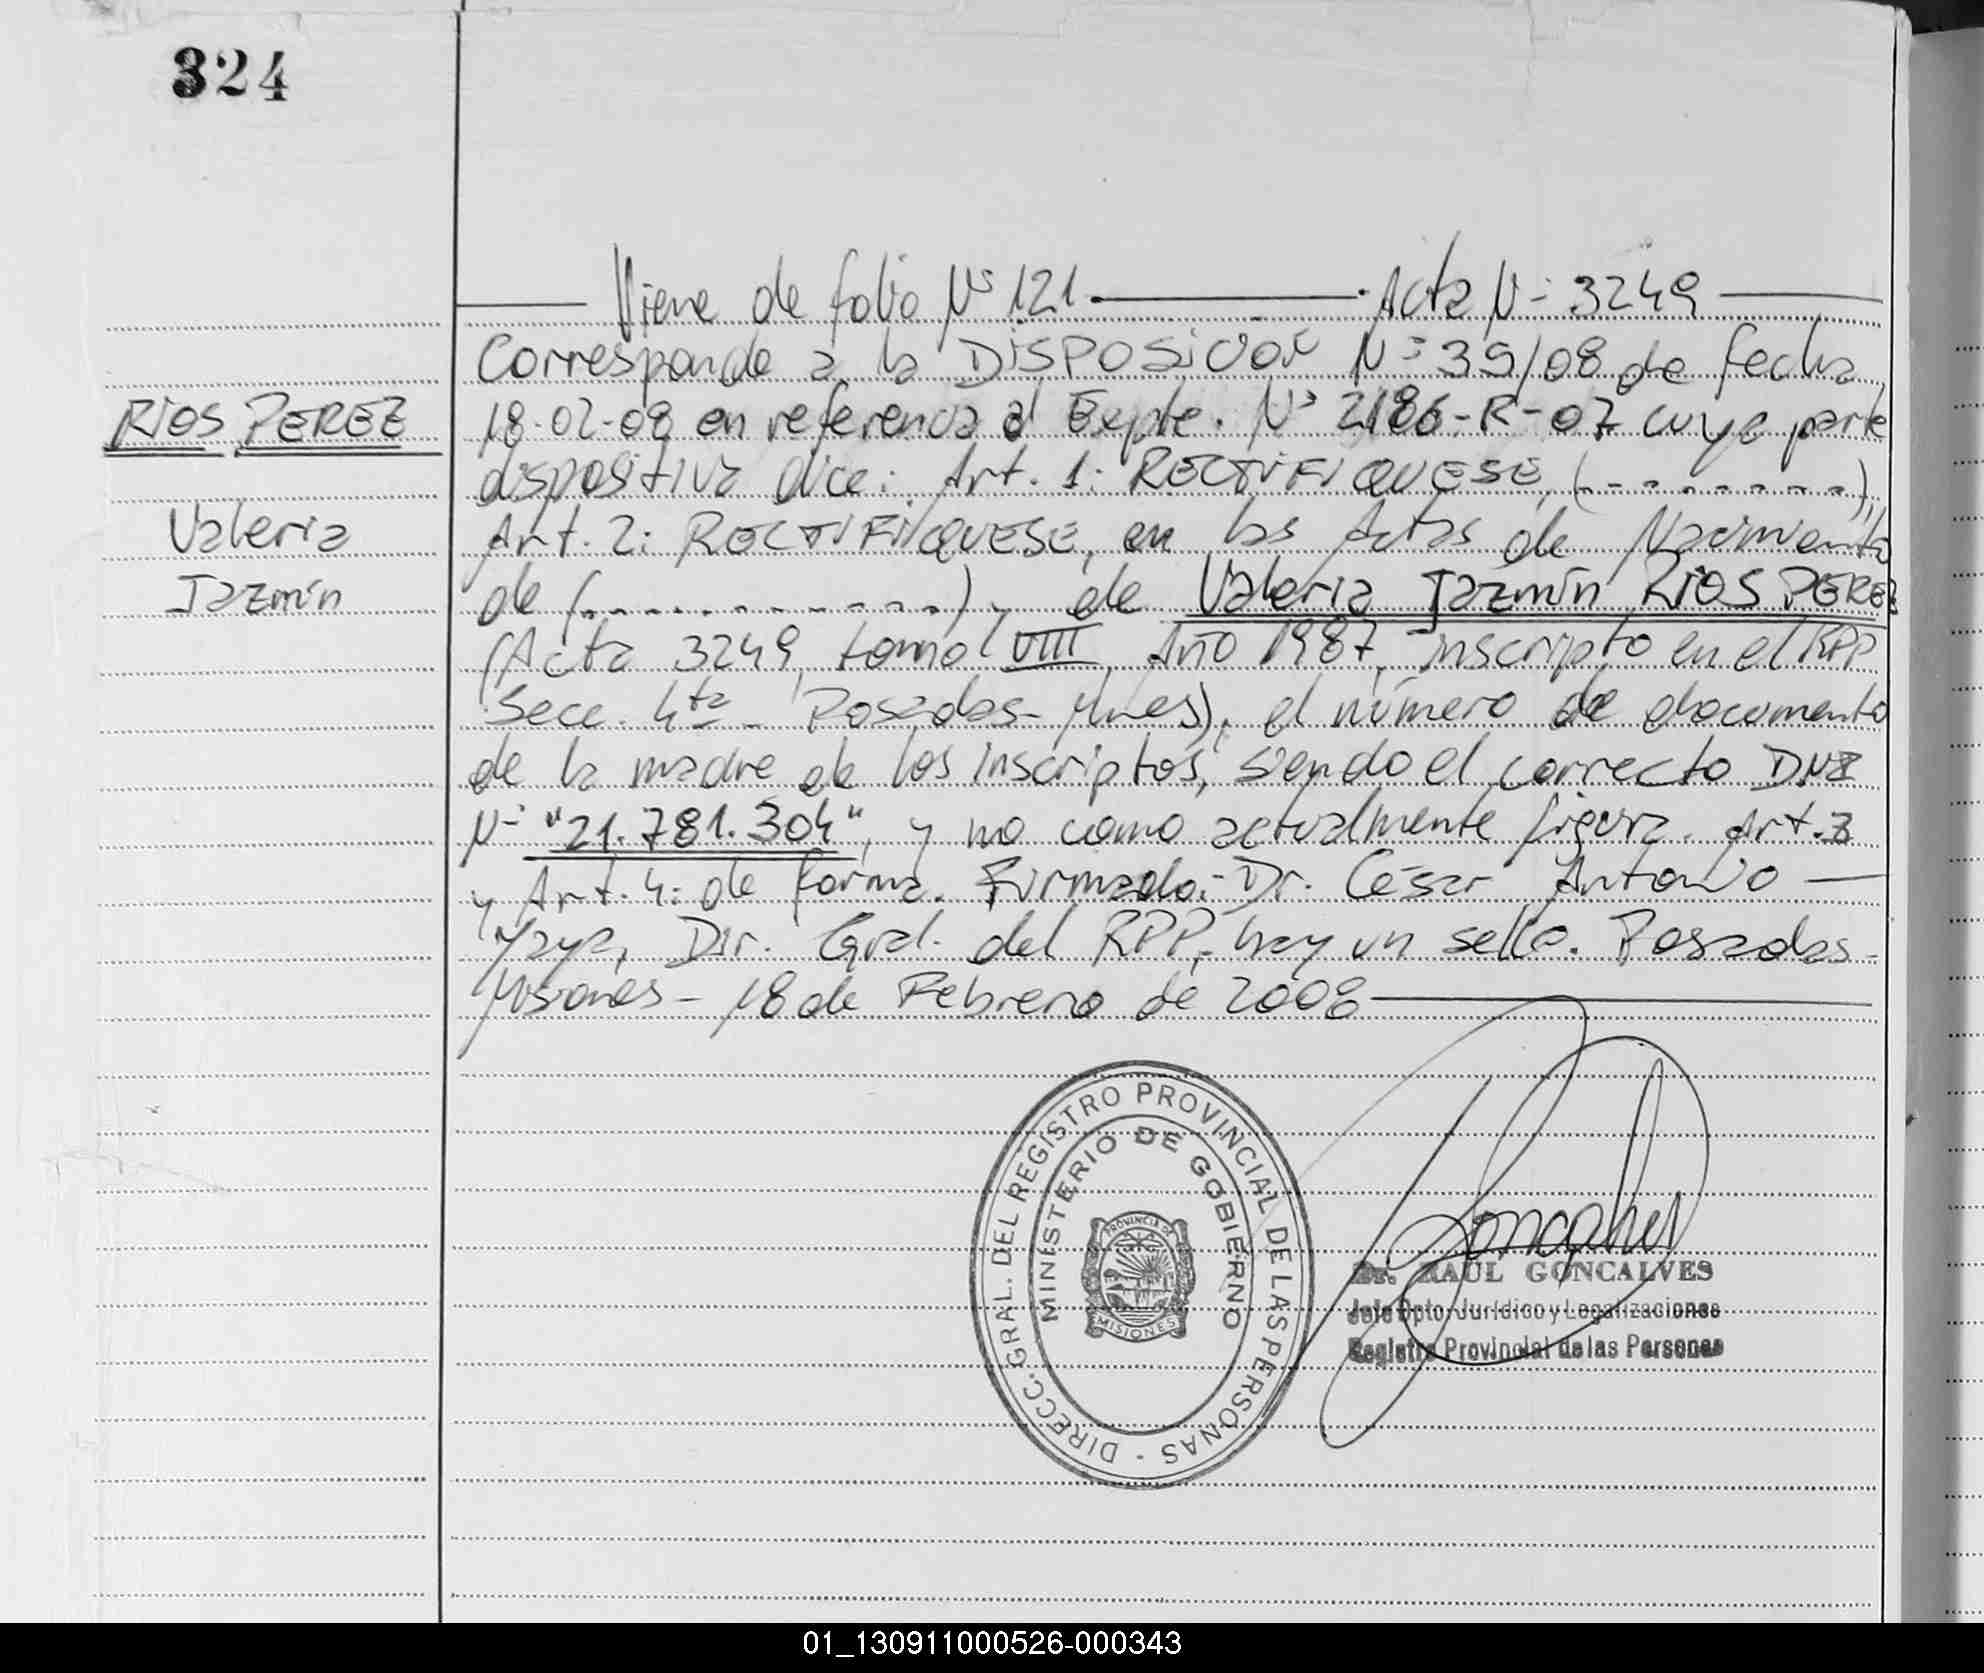 324
Viene de folio Nº 121. Acta Nº 3249
Corresponde a la DISPOSICION Nº 39/08 de fecha
RIOS PEREZ
18-02-08 en referencia al Expte. Nº 2186-R-07 cuya parte
dispositiva dice: Art. 1: RECTIFIQUESE, (- - - - - - - - -),
Valeria
Art. 2: RECTIFIQUESE, en las Actas de Nacimiento
Jazmín
de (- - - - - - - - - - - -) y de Valeria Jazmín RIOS PEREZ
(Acta 3249, tomo VIII, Año 1987, inscripto en el RPP
Secc. 4ta - Posadas - Mnes), el número de documento
de la madre de los inscriptos, siendo el correcto DNI
Nº "21.781.304", y no como actualmente figura. Art. 3
y Art. 4: de forma. Firmado: Dr. César Antonio
Yaya, Dir. Gral. del RPP, hay un sello. Posadas -
Misiones - 18 de Febrero de 2008
DIRECC. GRAL. DEL REGISTRO PROVINCIAL DE LAS PERSONAS -
MINISTERIO DE GOBIERNO
PROVINCIA DE
MISIONES
Dr. RAUL GONCALVES
Jefe Dpto. Jurídico y Legalizaciones
Registro Provincial de las Personas
01_130911000526-000343